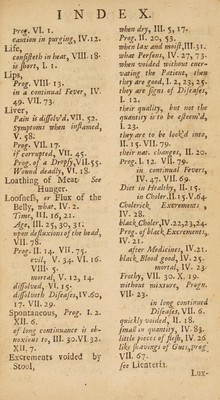 INDEX.
Prog. VI. 1.
caution in purging, IV.12.
Life,
consisteth in heat, VIII. 18.
is short, I. 1.
Lips,
Prog. VIII. 13.
in a continual Fever, IV.
49. VII. 73.
Liver,
Pain is dissolv'd, VII. 52.
Symptoms when inflamed,
V. 58.
Prog. VII. 17.
if corrupted, VII. 45.
Prog. of a Dropsy, VII.55.
Wound deadly, VI. 18.
Loathing of Meat: See
Hunger.
Loosness, or Flux of the
Belly, what, IV. 2.
Time, III. 16, 21.
Age, III. 25, 30, 31.
upon defluxions of the head,
VII. 78.
Prog. II. 14. VII. 75.
evil, V. 34. VI. 16.
VIII. 5.
mortal, V. 12, 14.
dissolved, VI. 15.
dissolveth Diseases, IV.60,
17. VII. 29.
Spontaneous, Prog. I. 2.
XII. 6.
of long continuance is ob-
noxious to, III. 30. VI. 32.
XII. 7.
Excrements voided by
Stool,
when dry, III. 5, 17.
Prog. II. 20, 53.
when lax and moist, III.31.
what Persons, IV. 27, 73.
when voided without ener-
vating the Patient, then
they are good, I. 2, 23, 25.
they are signs of Diseases,
I. 12.
their quality, but not the
quantity is to be esteem'd,
I. 23.
they are to be look'd into,
II. 15. VII. 79.
their nat. changes, II. 20.
Prog. I. 12. VII. 79.
in continual Fevers,
IV. 47. VII. 69.
Diet in Healthy, II. 15.
in Choler. II. 15. V. 64.
Cholerick Excrements,
IV. 28.
black Choler, IV.22,23,24.
Prog. of black Excrements,
IV. 21.
after Medicines, IV.21.
black Blood good, IV. 25.
mortal, IV. 23.
Frothy, VII. 30. X. 19.
without mixture, Progn.
VII. 23.
in long continued
Diseases, VII. 6.
quickly voided, II. 18.
small in quantity, IV. 83.
little pieces of flesh, IV. 26
like shavings of Guts, Prog.
VII. 67.
see Lienteria.
Lux-